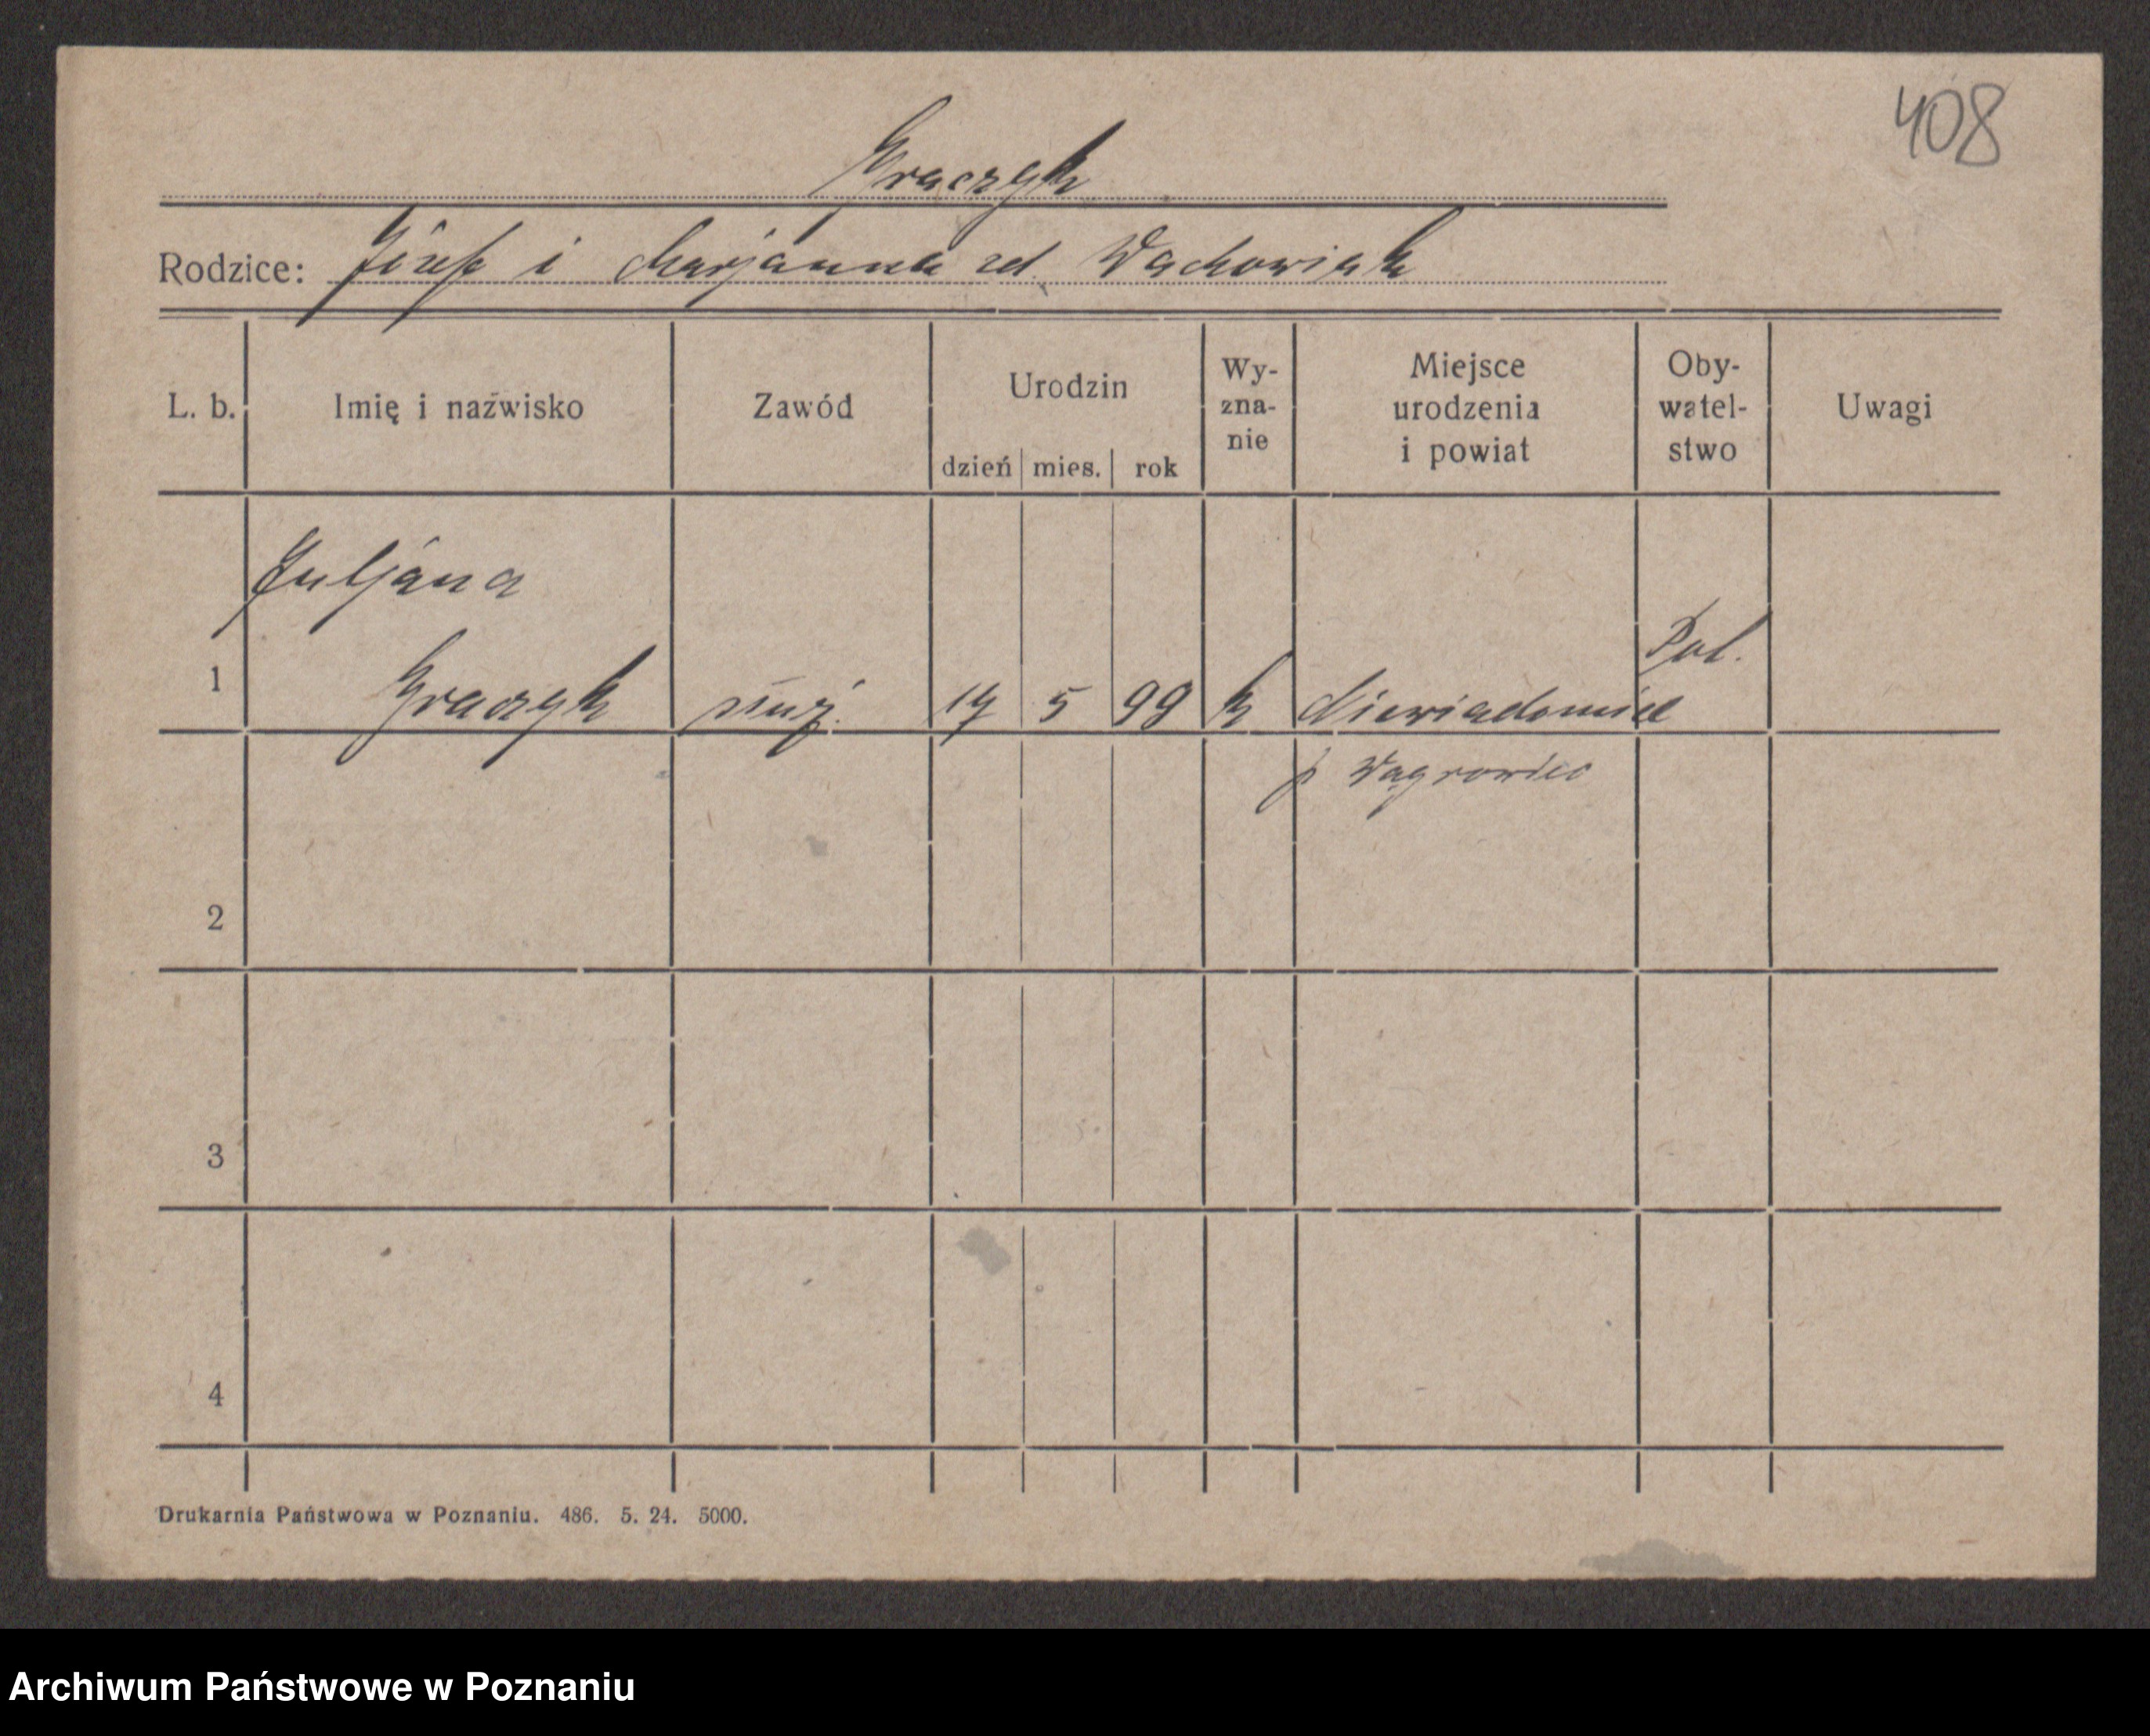 408
Graczyk
Rodzice: Józef i Marjanna zd. Wachowiak
L. b. Imię i nazwisko Zawód Urodzin dzień mies. rok Wy-zna-nie Miejsce urodzenia i powiat Oby-watel-stwo Uwagi
Juljana
1 Graczyk służ. 17 5 99 k Niewiadomice Pol.
p Wągrowiec
2
3
4
Drukarnia Państwowa w Poznaniu. 486. 5. 24. 5000.
Archiwum Państwowe w Poznaniu